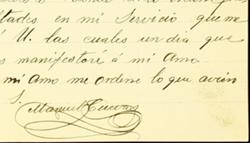 tades en mi Servicio que me
U. las cuales un dia que
manifestaré á mi Amo
mi Amo me ordene lo que
S.
Manuel Cuevas